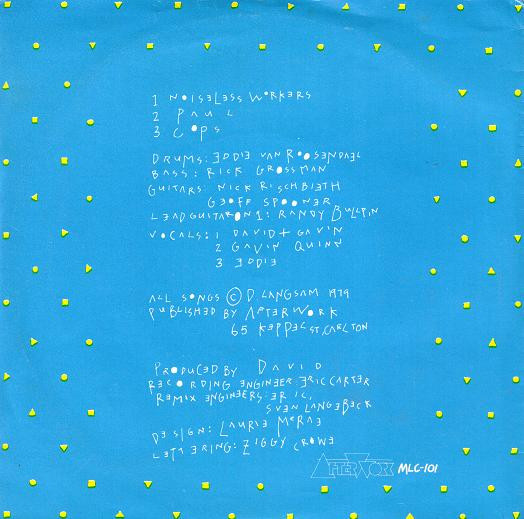 1 NOISELESS WORKERS
2 PAUL
3 COPS
DRUMS: EDDIE VAN ROOSENDAEL
BASS: RICK GROSSMAN
GUITARS: NICK RISCHBIETH
GEOFF SPOONER
LEAD GUITAR ON 1: RANDY BULLPIN
VOCALS: 1 DAVID + GAVIN
2 GAVIN QUINN
3 EDDIE
ALL SONGS © D. LANGSAM 1979
PUBLISHED BY AFTERWORK
65 KEPPEL ST. CARLTON
PRODUCED BY DAVID
RECORDING ENGINEER ERIC CARTER
REMIX ENGINEERS: ERIC,
SVEN LANGEBECK
DESIGN: LAURIE McRAE
LETTERING: ZIGGY CROWE
AFTERWORK MLC-101